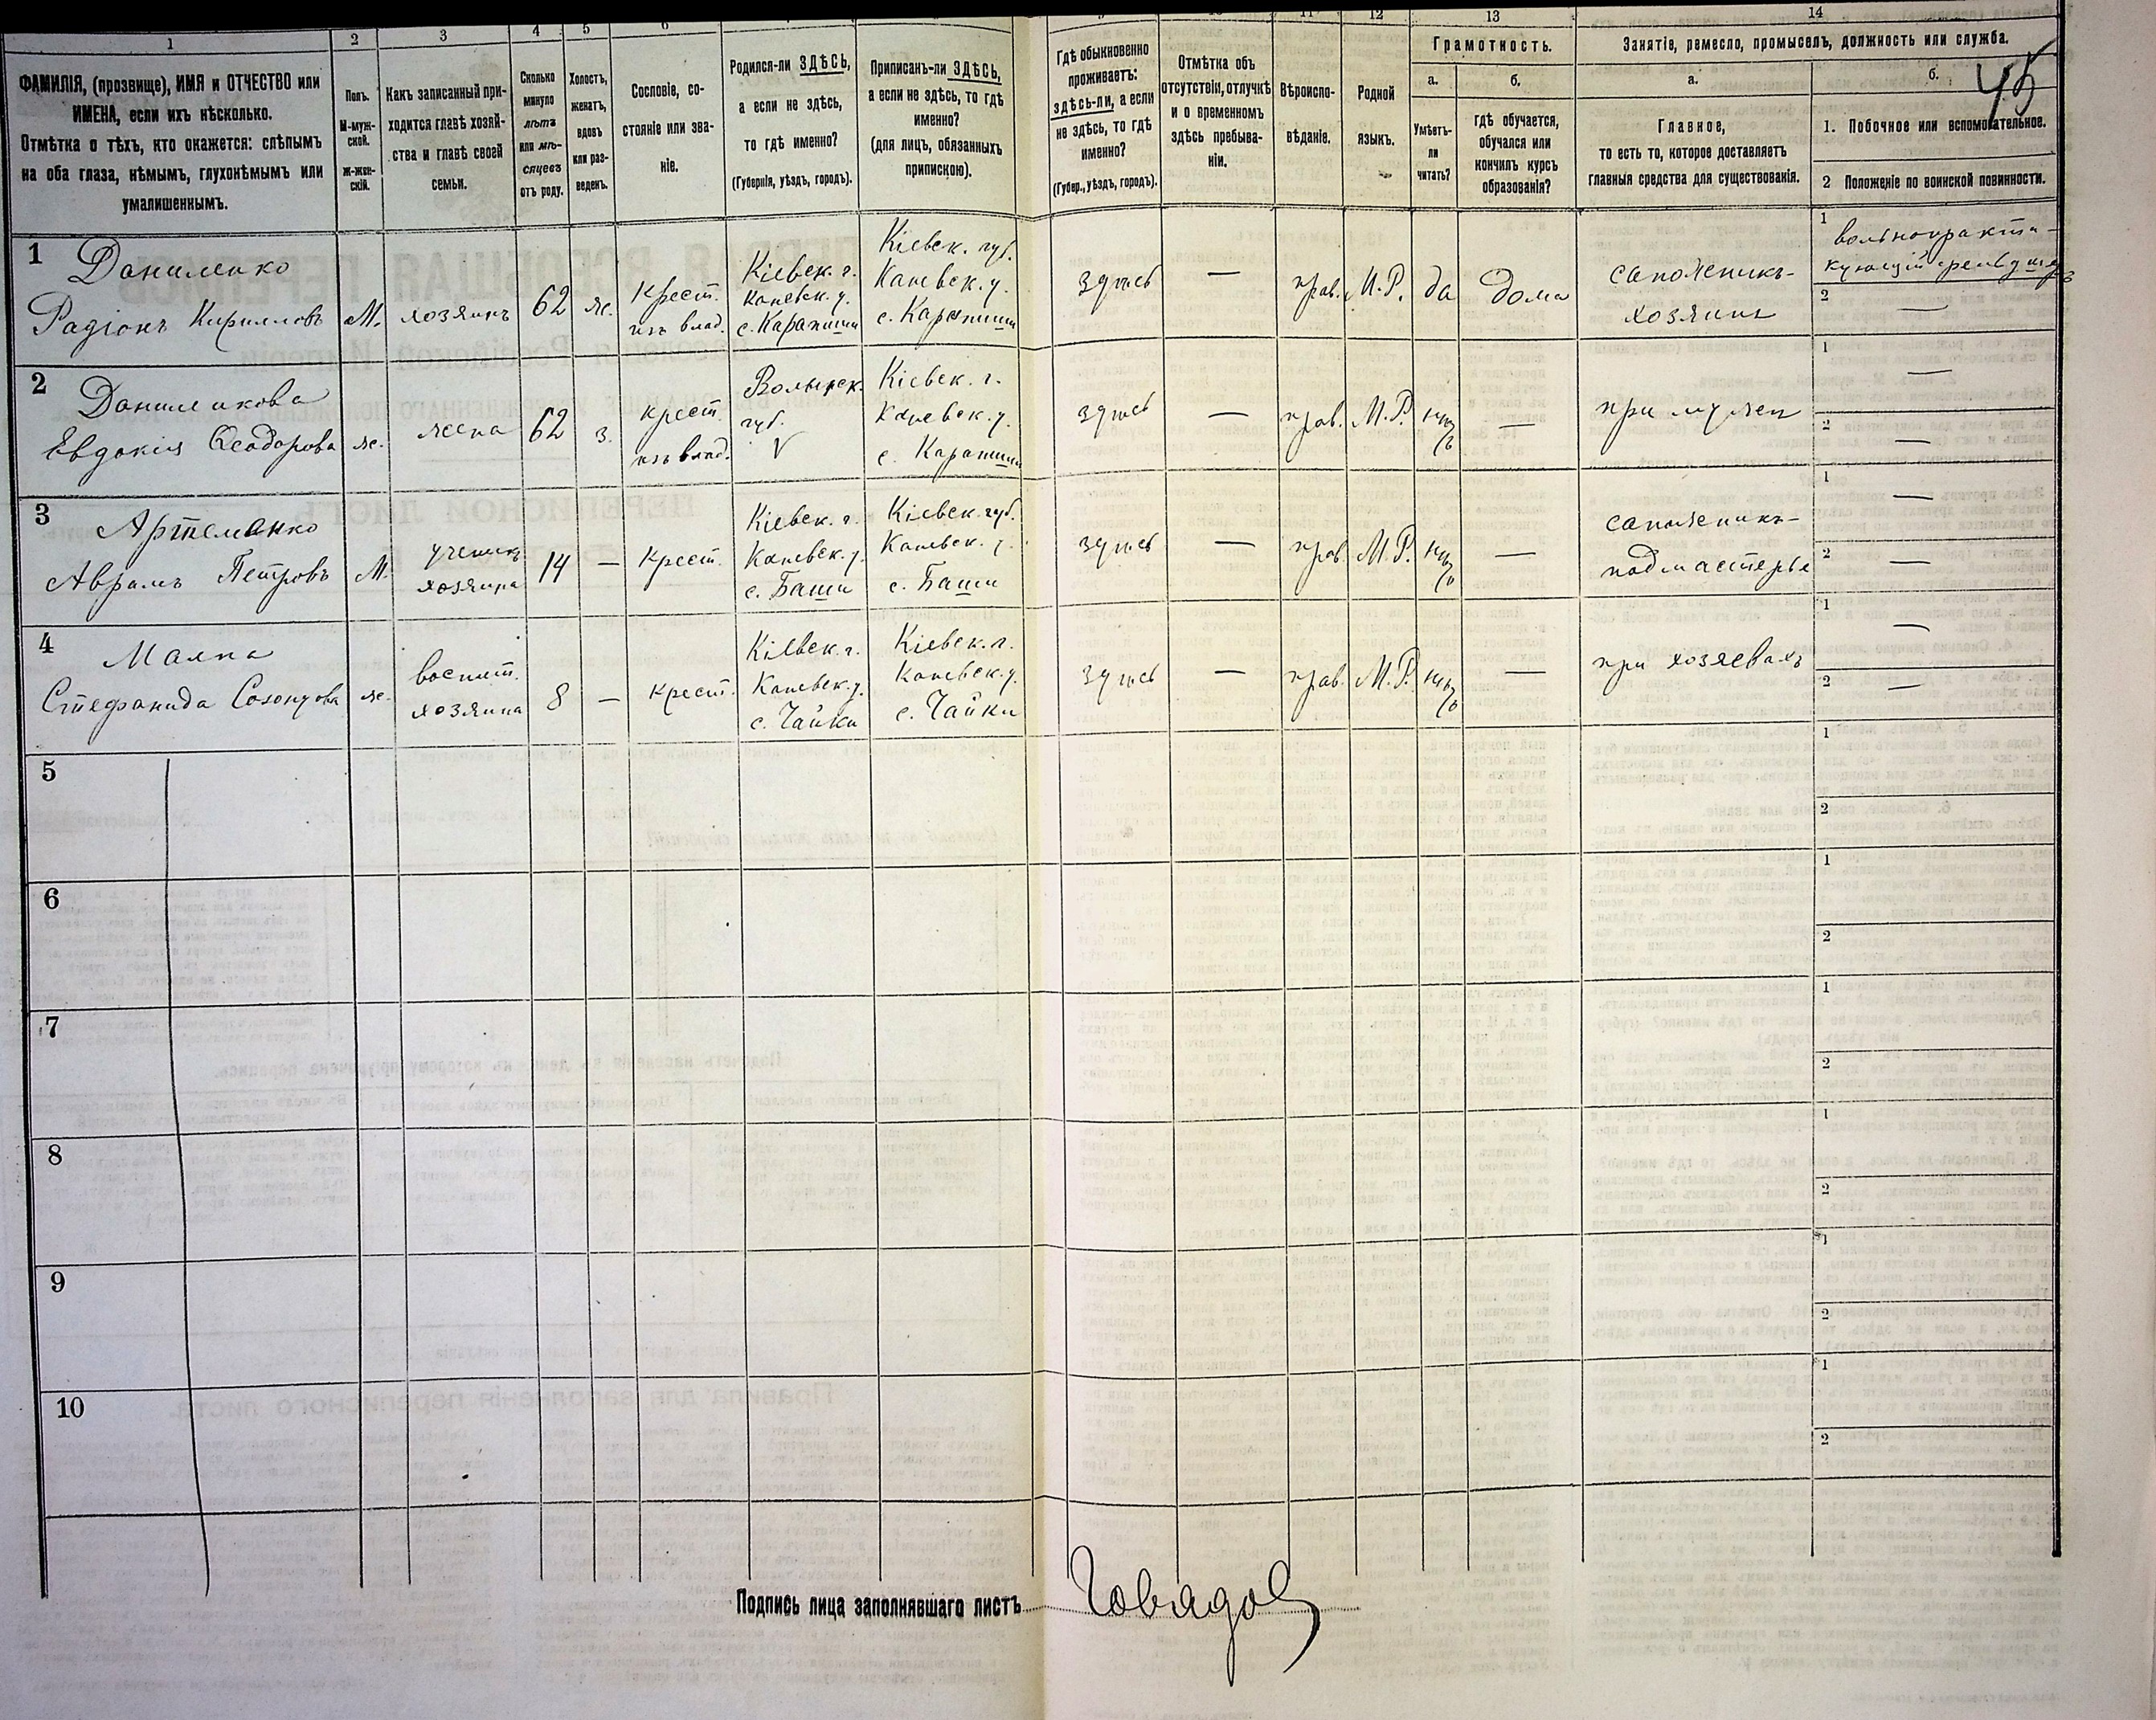 1
2
3
4
5
6
12
13
14
ФАМИЛІЯ, (прозвище), ИМЯ и ОТЧЕСТВО или
ИМЕНА, если ихъ нѣсколько.
Отмѣтка о тѣхъ, кто окажется: слѣпымъ
на оба глаза, нѣмымъ, глухонѣмымъ или
умалишеннымъ.
Полъ.
М-муж-
ской.
Ж-жен-
скій.
Какъ записанный при-
ходится главѣ хозяй-
ства и главѣ своей
семьи.
Сколько
минуло
лѣтъ
или мѣ-
сяцевъ
отъ роду.
Холостъ,
женатъ,
вдовъ
или раз-
веденъ.
Сословіе, со-
стояніе или зва-
ніе.
Родился-ли ЗДѢСЬ,
а если не здѣсь,
то гдѣ именно?
(Губернія, уѣздъ, городъ).
Приписанъ-ли ЗДѢСЬ,
а если не здѣсь, то гдѣ
именно?
(для лицъ, обязанныхъ
припискою).
Гдѣ обыкновенно
проживаетъ:
здѣсь-ли, а если
не здѣсь, то гдѣ
именно?
(Губер., уѣздъ, городъ).
Отмѣтка объ
отсутствіи, отлучкѣ
и о временномъ
здѣсь пребыва-
ніи.
Вѣроиспо-
вѣданіе.
Родной
языкъ.
Грамотность.
а.
б.
Умѣетъ-
ли
читать?
гдѣ обучается,
обучался или
кончилъ курсъ
образованія?
Занятіе, ремесло, промыселъ, должность или служба.
а.
б.
45
Главное,
то есть то, которое доставляетъ
главныя средства для существованія.
1. Побочное или вспомогательное.
2 Положеніе по воинской повинности.
1
Даниленко
Радіонъ Кирилловъ
М.
хозяинъ
62
ж.
крест.
изъ влад.
Кіевск. г.
Каневск. у.
с. Карапиши
Кіевск. губ.
Каневск. у.
с. Карапиши
здѣсь
—
прав.
М.Р.
да
дома
сапожникъ-
хозяинъ
1
вольнопракти-
кующій фельдшеръ
2
—
2
Даниленкова
Евдокія Ѳеодорова
ж.
жена
62
з.
крест.
изъ влад.
Волынск.
губ.
V
Кіевск. г.
Каневск. у.
с. Карапиши
здѣсь
—
прав.
М.Р.
нѣтъ
—
при мужѣ
1
—
2
—
3
Артеменко
Аврамъ Петровъ
М.
ученикъ
хозяина
14
—
крест.
Кіевск. г.
Каневск. у.
с. Баши
Кіевск. губ.
Каневск. у.
с. Баши
здѣсь
—
прав.
М.Р.
нѣтъ
—
сапожникъ-
подмастерье
1
—
2
—
4
Стефанида
ж.
воспит.
хозяина
8
—
крест.
Кіевск. г.
Каневск. у.
с. Чайки
Кіевск. г.
Каневск. у.
с. Чайки
здѣсь
—
прав.
М.Р.
нѣтъ
—
при хозяевахъ
1
—
2
—
5
1
2
6
1
2
7
1
2
8
1
2
9
1
2
10
1
2
Подпись лица заполнявшаго листъ